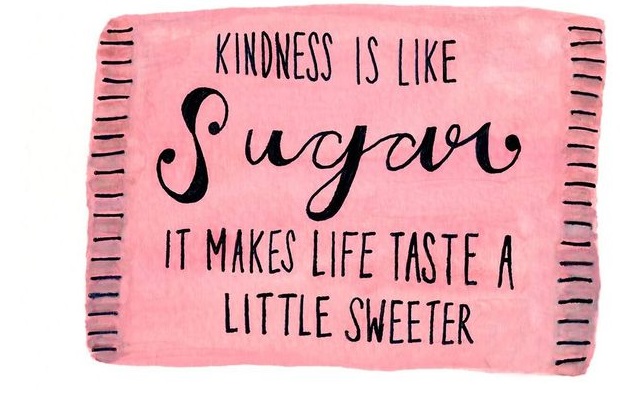 KINDNESS IS LIKE
Sugar
IT MAKES LIFE TASTE A
LITTLE SWEETER